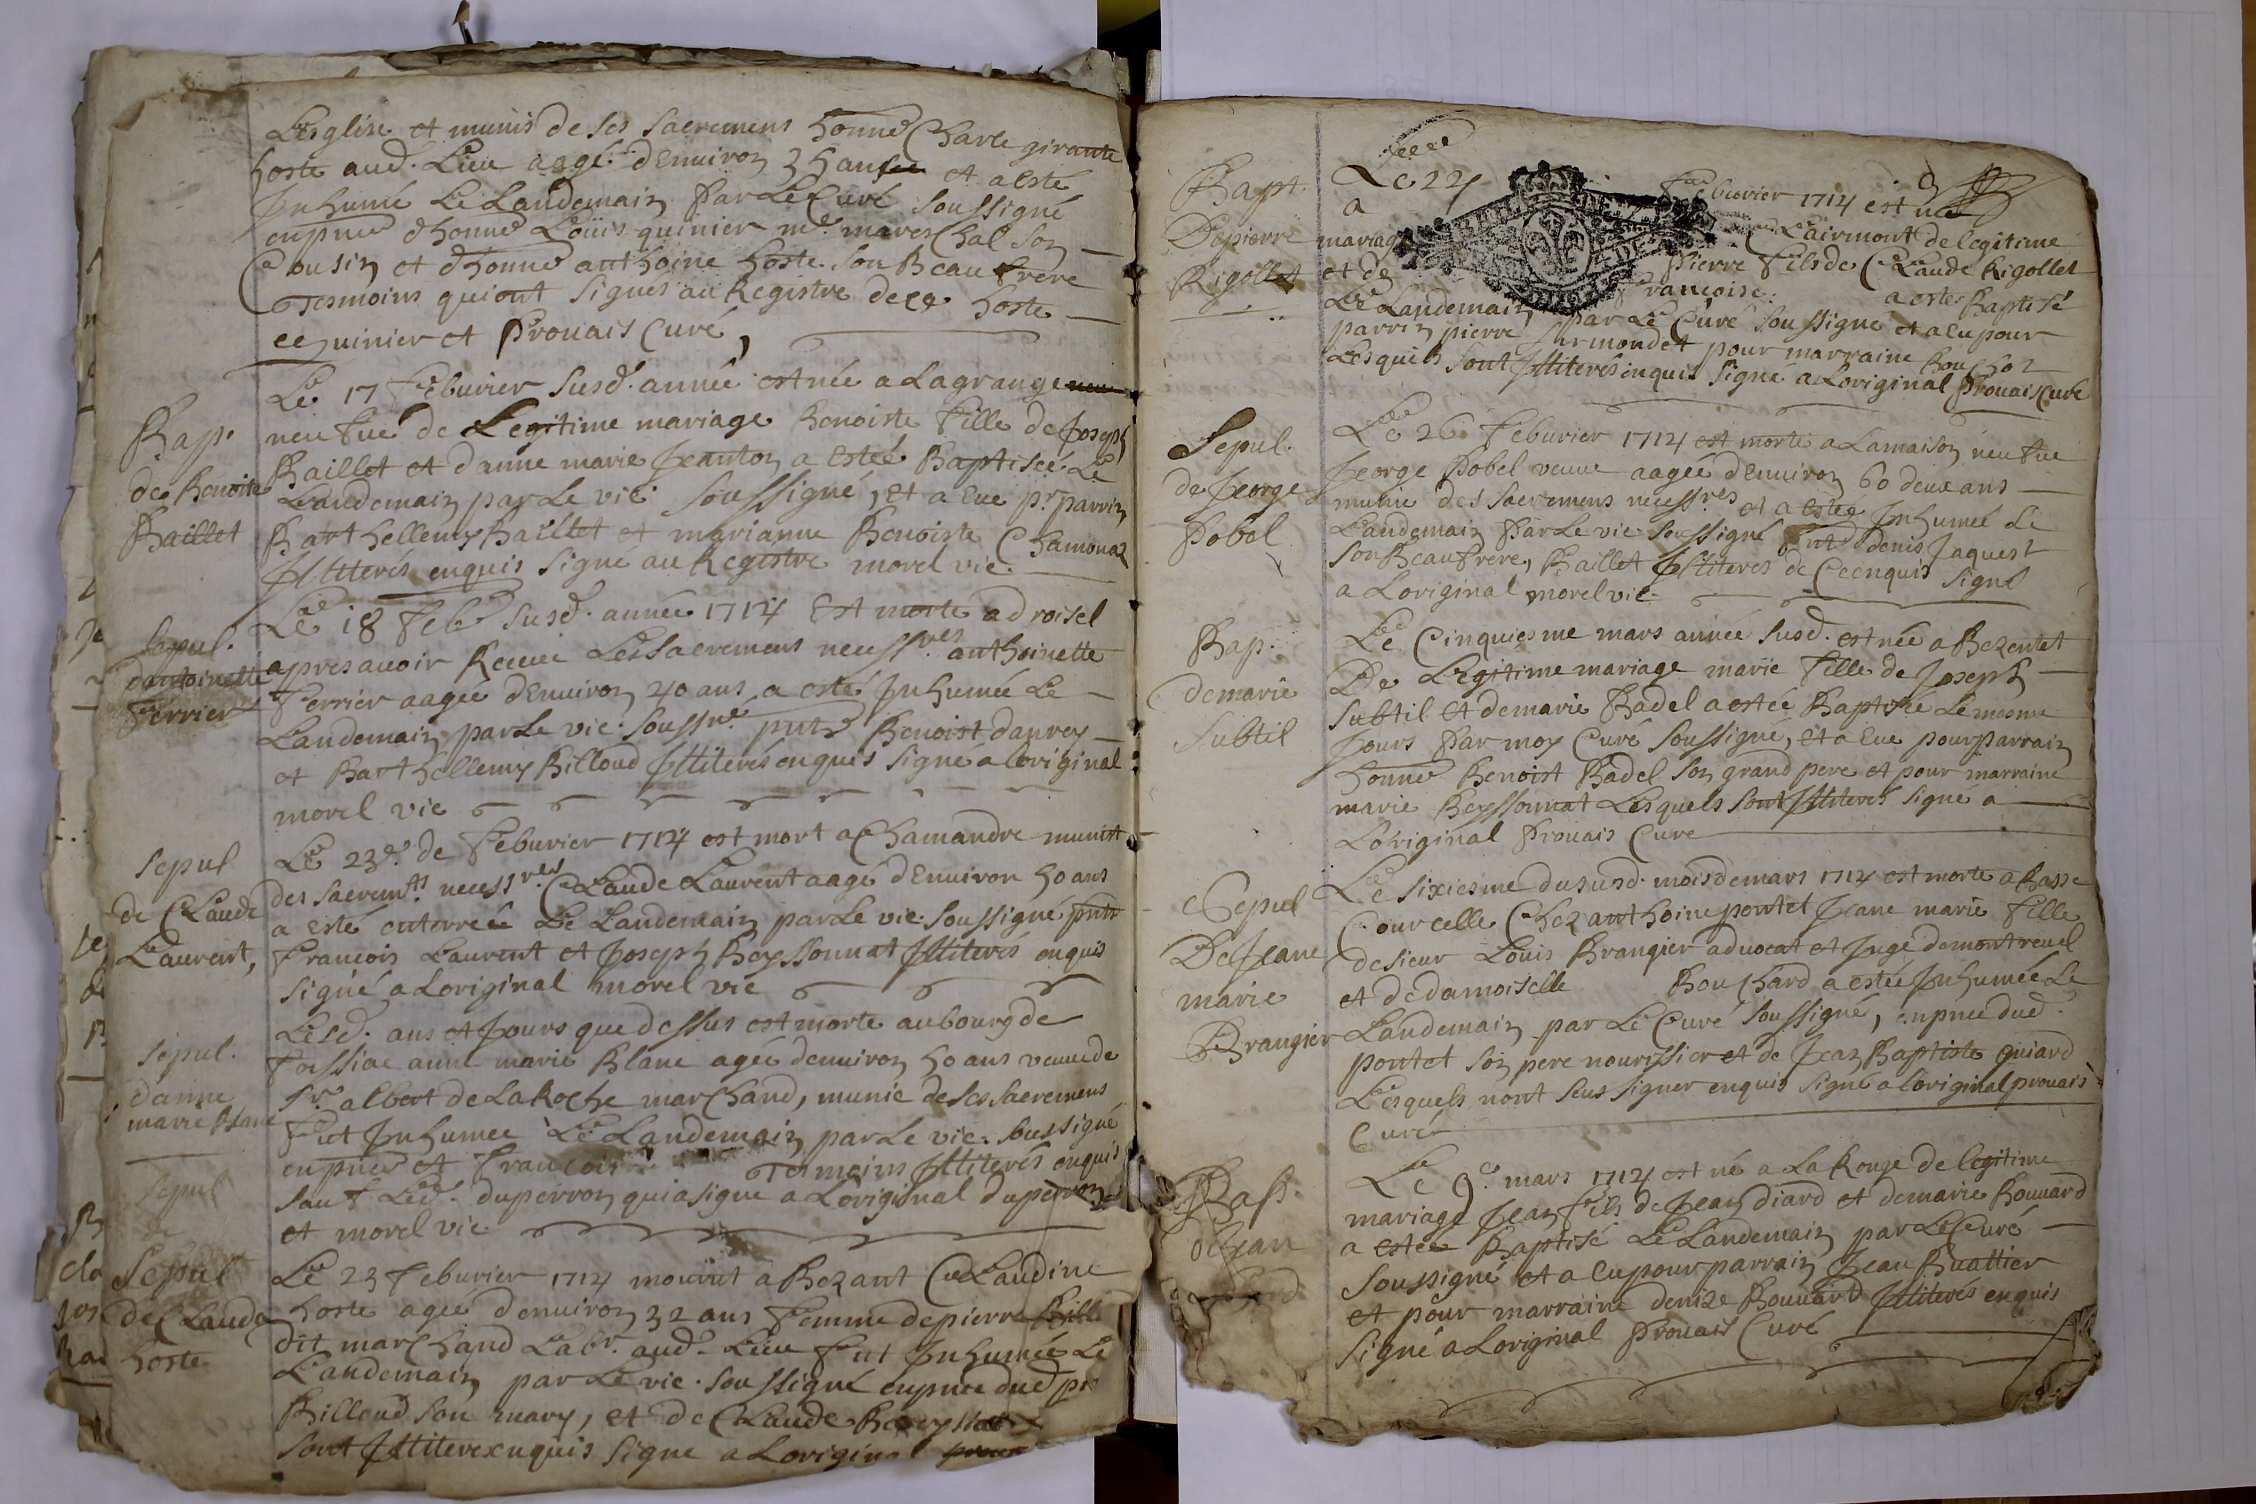 L'Esglise et munis de ses sacremens honne Charle girante
hoste aud. Lieu aagé d'Enuiron 35 ans et a esté
Inhumé Le Landemain Par Le Curé soussigné
enpnce d'honne Loüis quinier me mareschal son
Cousin et d'honne anthoine hoste son Beau frere
Tesmoins qui ont signes au Registre de ce hoste
quinier et Prouais Curé,
Bap.
de Benoite
Baillet
Le 17 Feburier susd. année est née a Lagrange
neufue de Legitime mariage Benoiste Fille de Joseph
Baillet et d'anne marie Jeanton a Estéé Baptiseé Le
Landemain par Le vic. soussigné, Et a Eue pr. parrin
Barthellemy Baillet et marianne Benoiste Chamonaz
Illiterés enquis signé au Registre morel vic.
Sepul.
dantoinette
Ferrier
Le 18 Feb susd. année 1714 Est morte a droisel
apres auoir Receue Les sacremens necessres anthoinette
Ferrier aagée d'Enuiron 40 ans a esté Inhumée Le
Landemain par Le vic. soussne. pnts Benoist danrey
et Barthellemy Billoud Illiterés enquis signé a loriginal
morel vic
Sepul
de Claude
Laurent,
Le 23e de Feburier 1714 est mort a Chamandre munist
des sacremts. necessres Claude Laurent aagé d'Enuiron 50 ans
a esté enterreé Le Landemain par Le vic. soussigné pnts
Francois Laurent et Joseph Beyssonnat Illiterés enquis
signé a Loriginal morel vic
Sepul.
danne
marie Blanc
Le sd. ans et Jours que dessus est morte au bourg de
Foissiac anne marie Blanc agée denuiron 50 ans veuue de
Sr. albert de La Roche marchand, munie de ses sacremens
Fut Inhumee Le Landemain par Le vic. soussigné
enpnce et Francois Tesmoins Illiterés enquis
sauf Led. duperron qui a signe a Loriginal duperron
et morel vic
Sepul
de
Sepul
de Claude
hoste
Le 23 Feburier 1714 mourut a Bezant Claudine
hoste agée denuiron 32 ans Femme de pierre Bill
dit marchand Labr. aud. Lieu Fut Inhumée Le
Landemain par Le vic. soussigné enpnce dud
Billoud son mary, et de Claude
sont Illiterex enquis signe a Loriginal
Bapt.
De pierre
Rigollet
Le 24 Feburier 1714 est né
a Clairmont de legitime
mariage Pierre Fils de Claude Rigollet
et de Francoise a este Baptisé
Le Landemain par Le Curé soussigné et a eu pour
parrin pierre Armondet pour marraine Bouchoz
Lesquels sont Illiterés enquis signé a Loriginal Prouais Curé
Sepul.
de Jeorge
Pobel
Le 26 Feburier 1714 est morte a Lamaison neufue
Jeorge Pobel veuue aagée d'Enuiron 60 deux ans
munie des sacremens necessres et a estéé Inhumeé Le
Landemain Par Le vic soussigné pnts denis Jaquest
son Beaufrere, Baillet Illiteres de Ce enquis signé
a Loriginal morel vic.
Bap.
de marie
Subtil
Le Cinquiesme mars année susd. est née a Bezentet
De Legitime mariage marie Fille de Joseph
Subtil Et de marie Badel a estéé Baptisée Le mesme
Jours Par moy Curé soussigné, et a Eue pour parrain
honne Benoist Badel son grand pere et pour marraine
marie Beyssonnat Lesquels sont Illiterés signé a
Loriginal Prouais Cure
Sepul
De Jeane
marie
Brangier
Le sixiesme du susd. mois de mars 1714 est morte a Basse
Courcelle Chez anthoine pontet Jeane marie Fille
de sieur Louis Brangier aduocat et Juge de montreuel
et de damoiselle Bouchard a estéé Inhumée Le
Landemain par Le Curé soussigné, enpnce dud.
pontet son pere nourrissier et de Jean Baptiste guiard
Lesquels nont seus signer enquis signé a loriginal prouais
Curé
Bap.
de Jean
Le 9e. mars 1714 est né a La Rouge de legitime
mariage Jean Fils de Jean diard et de marie Bouuard
a estée Baptisé Le Landemain par Le Curé
soussigné et a eu pour parrain Jean Buattier
et pour marraine denize Bouuard Illiterés enquis
signé a Loriginal Prouais Curé